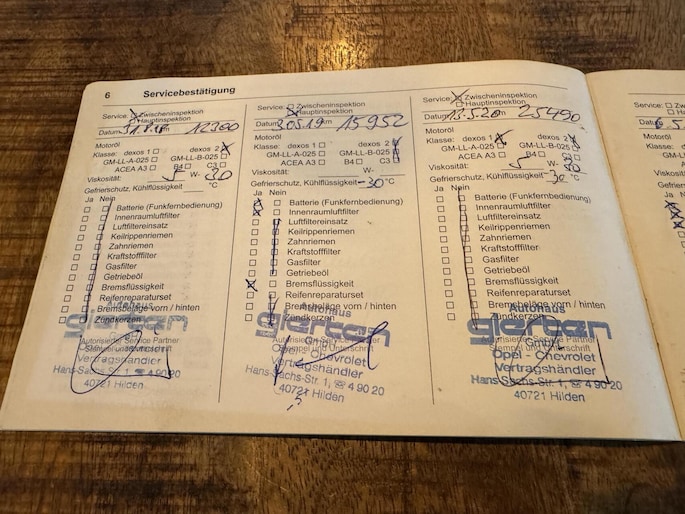 6 Servicebestätigung
Service: Zwischeninspektion
Hauptinspektion
Datum km 12300
Motoröl
Klasse: dexos 1 dexos 2
GM-LL-A-025 GM-LL-B-025
ACEA A3 B4 C3
Viskosität: 5 W- 30
Gefrierschutz, Kühlflüssigkeit °C
Ja Nein
Batterie (Funkfernbedienung)
Innenraumluftfilter
Luftfiltereinsatz
Keilrippenriemen
Zahnriemen
Kraftstofffilter
Gasfilter
Getriebeöl
Bremsflüssigkeit
Reifenreparaturset
Bremsbeläge vorn / hinten
Zündkerzen
Autohaus
gierten
Autorisierter Service Partner
Vertragshändler
Hans-Sachs-Str. 1, ☏ 4 90 20
40721 Hilden
Service: Zwischeninspektion
Hauptinspektion
Datum 3.05.19 km 15952
Motoröl
Klasse: dexos 1 dexos 2
GM-LL-A-025 GM-LL-B-025
ACEA A3 B4 C3
Viskosität: 5 W- 30
Gefrierschutz, Kühlflüssigkeit -30 °C
Ja Nein
Batterie (Funkfernbedienung)
Innenraumluftfilter
Luftfiltereinsatz
Keilrippenriemen
Zahnriemen
Kraftstofffilter
Gasfilter
Getriebeöl
Bremsflüssigkeit
Reifenreparaturset
Bremsbeläge vorn / hinten
Zündkerzen
Autohaus
gierten
GmbH
Opel - Chevrolet
Vertragshändler
Hans-Sachs-Str. 1, ☏ 4 90 20
40721 Hilden
Service: Zwischeninspektion
Hauptinspektion
Datum 13.5.20 km 25490
Motoröl
Klasse: dexos 1 dexos 2
GM-LL-A-025 GM-LL-B-025
ACEA A3 B4
Viskosität: 5 W- 30
Gefrierschutz, Kühlflüssigkeit -30 °C
Ja Nein
Batterie (Funkfernbedienung)
Innenraumluftfilter
Luftfiltereinsatz
Keilrippenriemen
Zahnriemen
Kraftstofffilter
Gasfilter
Getriebeöl
Bremsflüssigkeit
Reifenreparaturset
Bremsbeläge vorn / hinten
Zündkerzen
Autohaus
gierten
GmbH
Opel - Chevrolet
Vertragshändler
Hans-Sachs-Str. 1, ☏ 4 90 20
40721 Hilden
Service:
Datum
Motoröl
Klasse:
GM-L
A
Viskosität
Gefrierschutz
Ja Nein